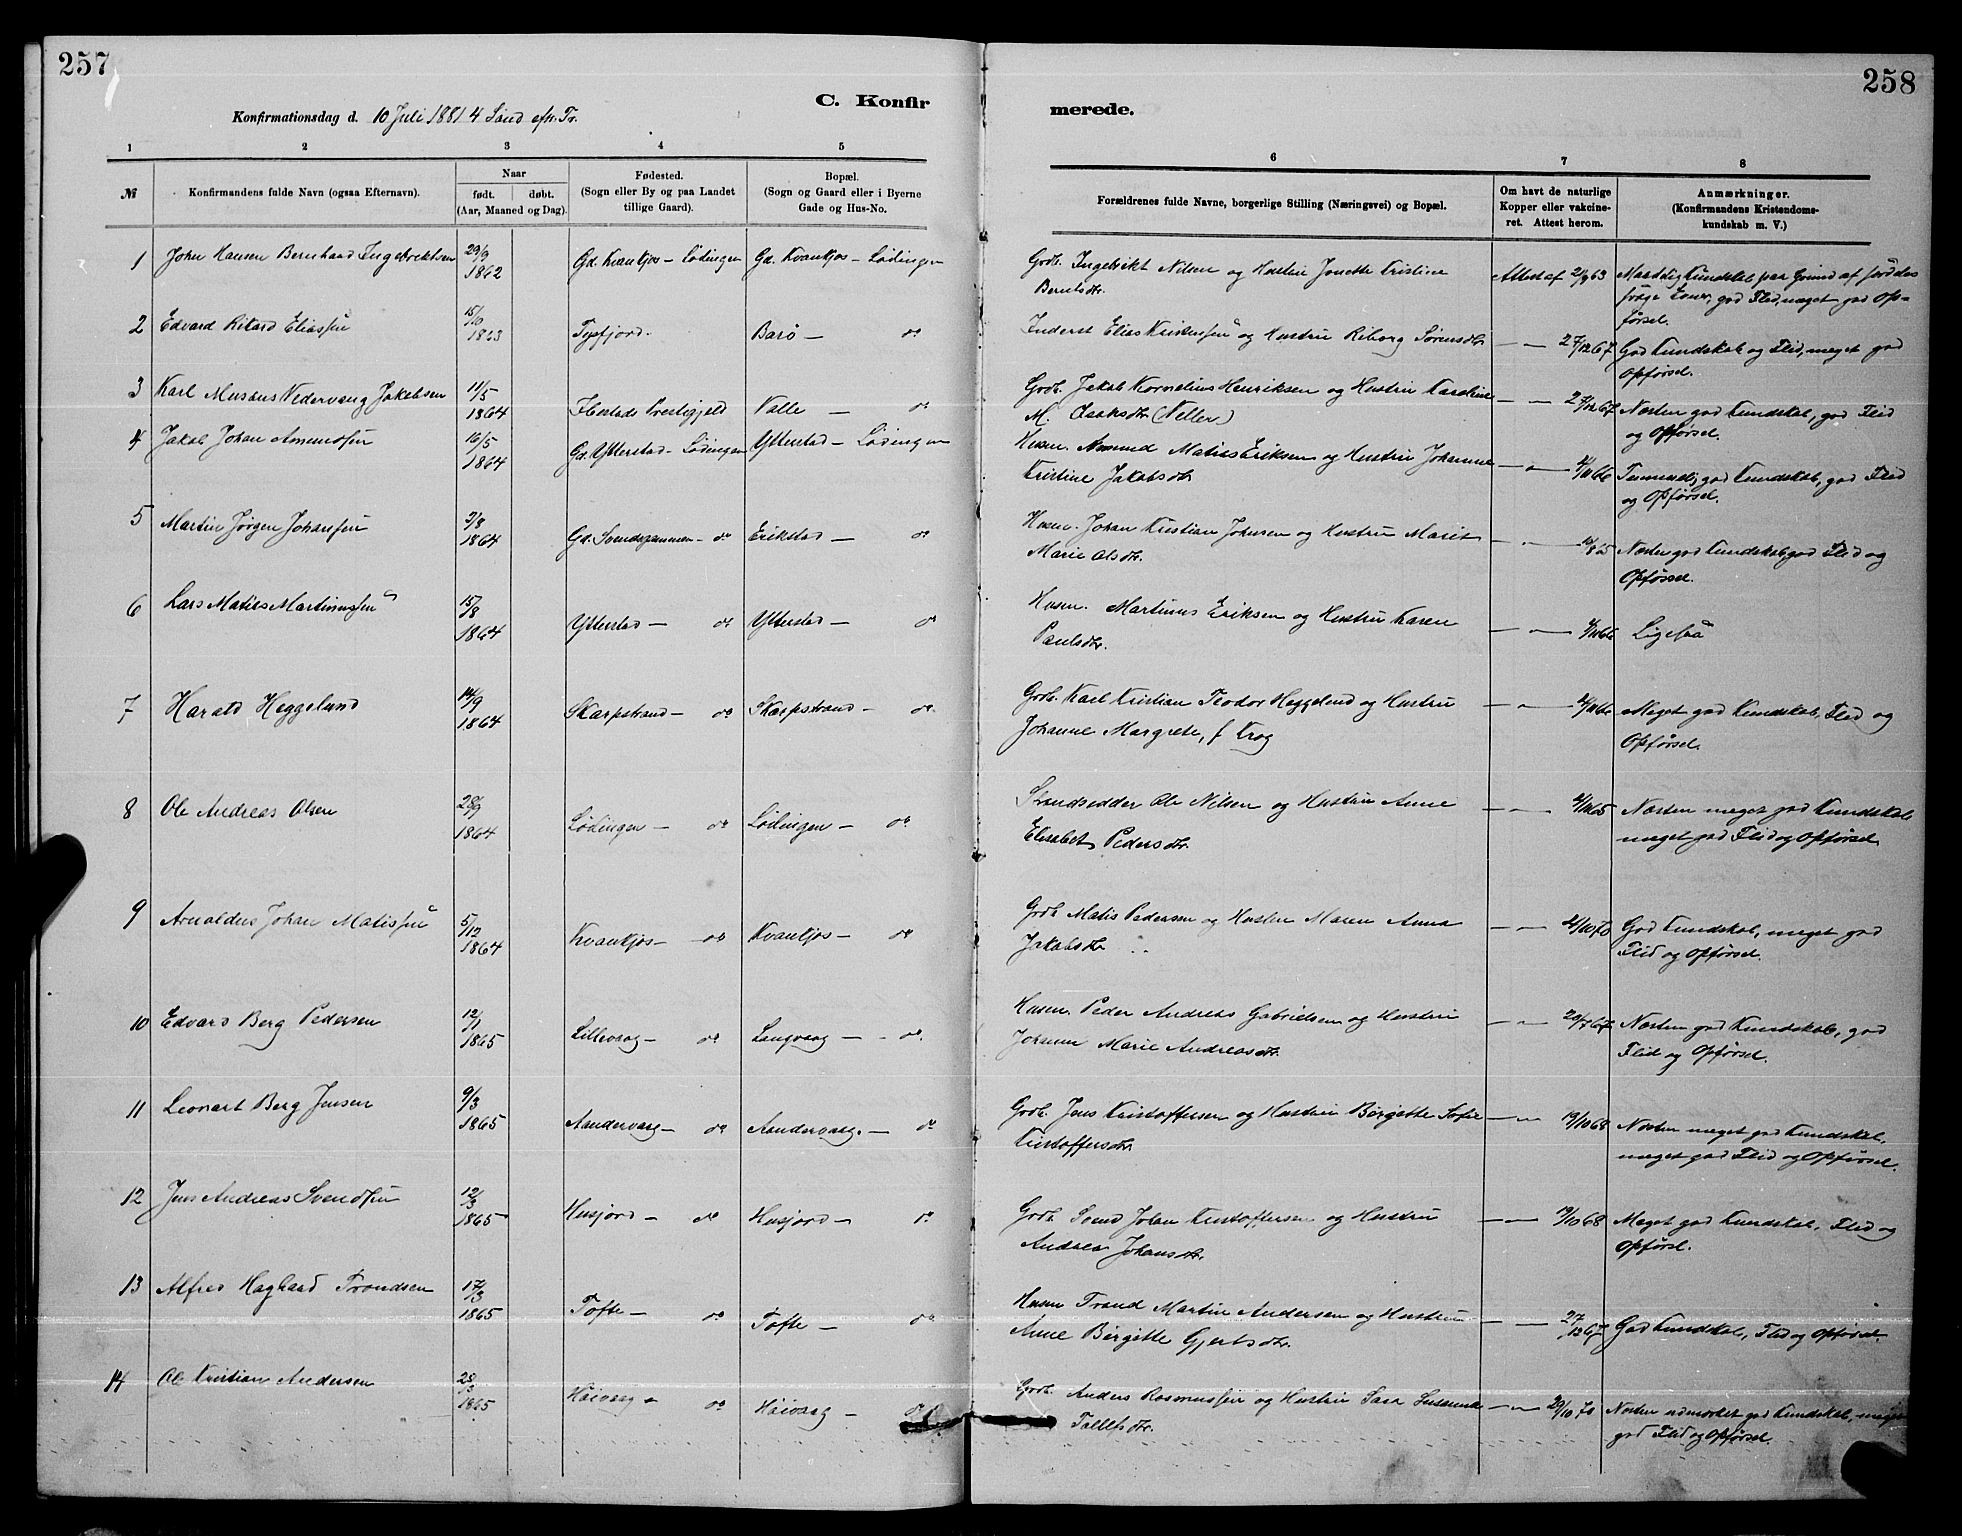 257
258
C. Konfir
merede.
Konfirmationsdag d. 10 Juli 1881 4 Sønd eft. Tr.
1 2 3 4 5 6 7 8
№
Konfirmandens fulde Navn (ogsaa Efternavn).
Naar
født. døbt.
(Aar, Maaned og Dag).
Fødested.
(Sogn eller By og paa Landet
tillige Gaard).
Bopæl.
(Sogn og Gaard eller i Byerne
Gade og Hus-No.
Forældrenes fulde Navne, borgerlige Stilling (Næringsvei) og Bopæl.
Om havt de naturlige
Kopper eller vakcine-
ret. Attest herom.
Anmærkninger.
(Konfirmandens Kristendoms-
kundskab m. V.)
1 John Hansen Bernhard Ingebrektsen 29/9 1862 Gd. Kvankjos - Lødingen Gd. Kvankjos - Lødingen Grdb. Ingebrikt Nilsen og Hustru Jonette Kristine
Berntsdtr. Attest af 2/8 63 Maadelig Kundskab paa Grund af
god Flid, meget god Op-
førsel.
2 Edvard Rikard Eliassen 15/10 1863 Tysfjord. Barø — do Inderst Elias Kristensen og Hustru Reborg Sørensdtr — 27/12 67 God Kundskab og Flid, meget god
Opførsel.
3 Karl Musæus Nedervang Jakobsen 11/5 1864 Ibestads Prestegjeld Valle — do Grdb. Jakob Kornelius Henriksen og Hustru Karoline
M. Isaksdtr (Neller) — 27/12 67 Næsten god Kundskab, god Flid
og Opførsel.
4 Jakob Johan Amundsen 16/5 1864 Gd. Ytterstad - Lødingen Ytterstad - Lødingen Husm. Amund Matias Eriksen og Hustru Johanne
Kristine Jakobsdtr — 4/11 66 Temmelig god Kundskab, god Flid
og Opførsel.
5 Martin Jørgen Johansen 2/8 1864 Gd. Svendsgammen - do Erikstad — do Husm. Johan Kristian Johnsen og Hustru Marit
Marie Olsdtr. — Næsten god Kundskab, god Flid og
Opførsel.
6 Lars Matias Martinussen 15/8 1864 Ytterstad — do Ytterstad — do Husm. Martinus Eriksen og Hustru Karen
Paulsdtr. — 4/11 66 Ligesaa
7 Harald Heggelund 14/9 1864 Skarpstrand — do Skarpstrand — do Grdb. Karl Kristian Teodor Heggelund og Hustru
Johanne Margrete, f Krog — 4/11 66 Meget god Kundskab, Flid og
Opførsel.
8 Ole Andreas Olsen 28/9 1864 Lødingen — do Lødingen — do Strandsidder Ole Nilsen og Hustru Anne
Elisabet Pedersdtr. — 4/11 65 Næsten meget god Kundskab
meget god Flid og Opførsel
9 Arnoldus Johan Matissen 5/12 1864 Kvankjos — do Kvankjos — do Grdb Matis Pedersen og Hustru Maren Anna
Jakobsdtr — 21/10 70 God Kundskab, meget god
Flid og Opførsel.
10 Edvard Berg Pedersen 12/1 1865 Lillevaag — do Langvaag — do. Husm. Peder Andreas Gabrielsen og Hustru
Johanne Marie Andreasdtr. — 20/7 67 Næsten god Kundskab, god
Flid og Opførsel.
11 Leonart Berg Jensen 9/3 1865 Aandervaag — do Aandervaag. — do Grdb. Jens Kristoffersen og Hustru Birgitte Sofie
Kristoffersdtr. — 19/10 68 Næsten meget god Kundskab,
meget god Flid og Opførsel.
12 Jens Andreas Svendsen 12/3 1865 Husjord — do Husjord — do Grdb. Svend Johan Kristoffersen og Hustru
Andrea Johansdtr. — 19/10 68 Meget god Kundskab, Flid og
Opførsel.
13 Alfred Hagbard Trondsen 17/3 1865 Tofte — do Tofte — do Husm Trond Martin Andersen og Hustru
Anne Birgitte Gjertsdtr. — 27/12 67 God Kundskab, Flid og Opførsel.
14 Ole Kristian Andersen 28/3 1865 Høivaag — do Høivaag — do Grdb. Anders Rasmussen og Hustru Sara Susanna
Tollefsdtr. — 29/10 70 Næsten udmærket god Kundskab, meget
god Flid og Opførsel.